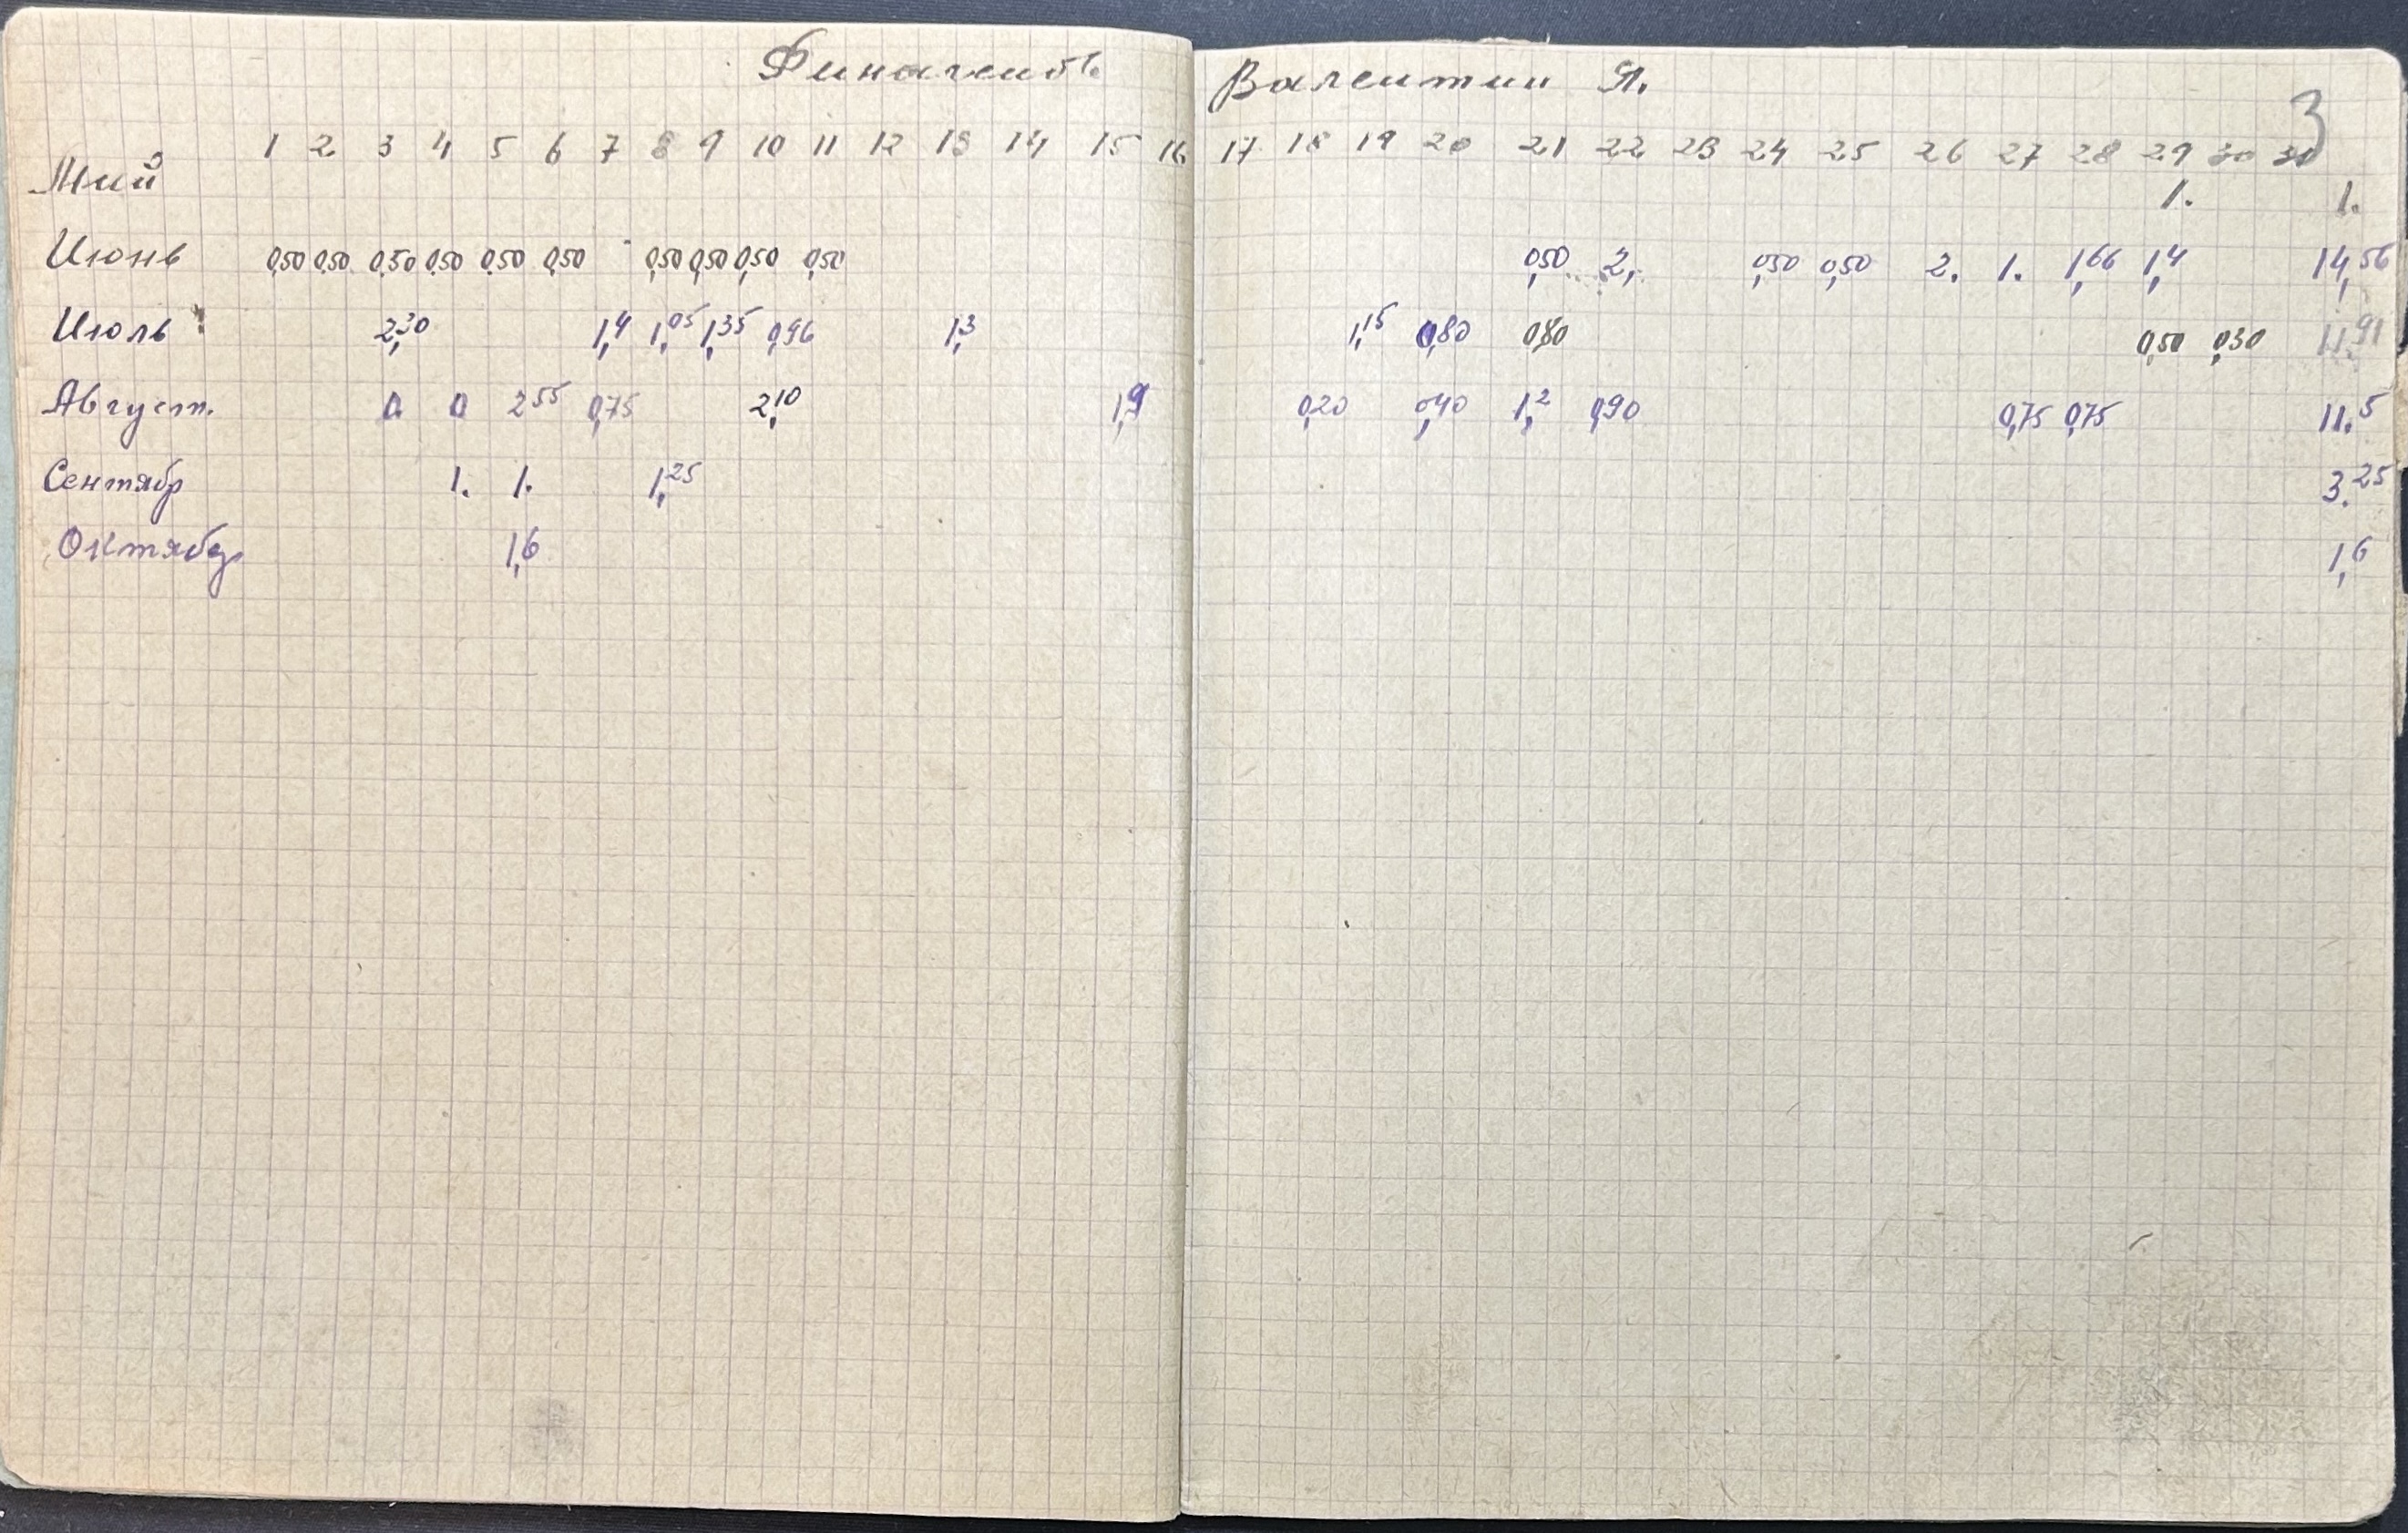 Финогенов Валентин Я.
3
1 2 3 4 5 6 7 8 9 10 11 12 13 14 15 16 17 18 19 20 21 22 23 24 25 26 27 28 29 30 31
Май 1. 1.
Июнь 0,50 0,50 0,50 0,50 0,50 0,50 0,50 0,50 0,50 0,50 0,50 2, 0,50 0,50 2. 1. 1,66 1,4 14,56
Июль 2,30 1,4 1,05 1,35 0,96 1,3 1,15 0,80 0,80 0,50 0,30 11,91
Август. 2 55 0,75 2,10 1,9 0,20 0,40 1,2 0,90 0,75 0,75 11.5
Сентябр 1. 1. 1,25 3.25
Октябр 1,6 1,6